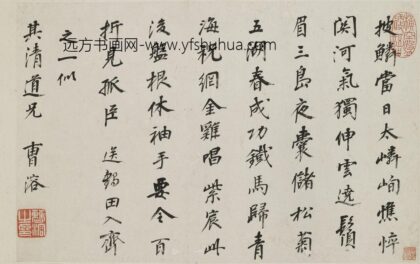 披鱗當日太嶙峋憔悴
関河氣獨伸雲遶鬢
眉三島夜囊儲松菊
五湖春成功鐵馬歸青
海脱網金雞唱紫宸此
後盤根休袖手要令百
折見孤臣 送鶴田入齊
之一似
其清道兄 曹溶
远方书画网-www.yfshuhua.com